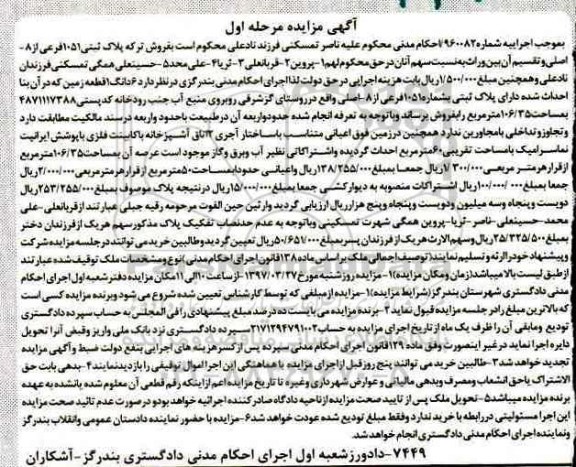 آگهی مزایده مرحله اول
بموجب اجراییه شماره ۹۶۰۰۸۲/احکام مدنی محکوم علیه ناصر تمسکنی فرزند نادعلی محکوم است بفروش ترکه پلاک ثبتی ۱۰۵۱فرعی از ۸-
اصلی وتقسیم آن بین وراث به نسبت سهم آنان در حق محکوم لهم۱-پروین۲-قربانعلی۳-ثریا۴-علی محمد۵-حسینعلی همگی تمسکنی فرزندان
نادعلی وهمچنین مبلغ ۱/۵۰۰/۰۰۰ریال بابت هزینه اجرایی در حق دولت لذا اجرای احکام مدنی بندرگزی در نظر دارد ۶دانگ۱قطعه زمین که در آن بنا
احداث شده دارای پلاک ثبتی بشماره۱۰۵۱فرعی از۸-اصلی واقع در روستای گزشرقی روبروی منبع آب جنب رودخانه کدپستی۴۸۷۱۱۱۷۳۸۸
بمساحت۱۰۶/۳۵مترمربع رابفروش برساند وباتوجه به تعرفه انجام شده حدودواربعه آن درطبیعت باحدود واربعه درسند مالکیت مطابقت دارد
و تجاوز وتداخلی بامجاورین ندارد همچنین درزمین فوق اعیانی متناسب باساختار آجری ۲اتاق آشپزخانه باکابینت فلزی باپوشش ایرانیت
نما سرامیک بامساحت تقریبی ۶۰مترمربع احداث گردیده واشتراکاتی نظیر آب وبرق وگاز موجود است عرصه آن بمساحت۱۰۶/۳۵مترمربع
ازقرارهرمتر مربعی ۱/۳۰۰/۰۰۰ریال جمعا بمبلغ ۱۳۸/۲۵۵/۰۰۰ریال واعیانی حدودا بمساحت۵۰مترمربع ازقرارهرمترمربعی۲/۰۰۰/۰۰۰ریال
جمعا بمبلغ ۱۰۰/۰۰۰/۰۰۰ریال اشتراکات منصوبه به دیوارکشی جمعا بمبلغ ۱۵/۰۰۰/۰۰۰ریال درنتیجه پلاک موصوف بمبلغ ۲۵۳/۲۵۵/۰۰۰ریال
دویست وپنجاه وسه میلیون ودویست وپنجاه وپنج هزارریال ارزیابی گردید وارثین حین الفوت مرحومه رقیه جبلی عبارتند ازقربانعلی-علی
محمد-حسینعلی-ناصر-ثریا-پروین همگی شهرت تمسکینی وباتوجه به عدم حدنصاب تفکیک پلاک مذکور سهم هریک ازفرزندان دختر
بمبلغ۲۵/۳۲۵/۵۰۰ریال وسهم الارث هریک ازفرزندان پسر بمبلغ ۵۰/۶۵۱/۰۰۰ریال تعیین گردید وطالبین خرید می توانند در جلسه مزایده شرکت
وپیشنهاد خود را ارائه و تسلیم نمایند(توصیف اجمالی ملک براساس ماده ۱۳۸قانون اجرای احکام مدنی)نوع ومشخصات ملک توقیف شده عبارتند
از طبق لیست بالا میباشد(زمان ومکان مزایده)۱-مزایده روزشنبه مورخ۱۳۹۷/۰۳/۲۷ازساعت ۱۰الی ۱۱مکان مزایده دفترشعبه اول اجرای احکام
مدنی دادگستری شهرستان بندرگز(شرایط مزایده)۱-مزایده ازمبلغی که توسط کارشناس تعیین شده شروع می شود وبرنده مزایده کسی است
که بالاترین مبلغ رادر جلسه مزایده قبول نماید۲-برنده مزایده می بایست ده درصد مبلغ پیشنهادی رافی المجلس به حساب سپرده دادگستری
تودیع ومابقی آن را ظرف یک ماه از تاریخ اجرای مزایده به حساب۲۱۷۱۲۹۴۷۹۱۰۰۲سپرده دادگستری نزد بانک ملی واریز وقبض آنرا تحویل
دایره اجرا نماید درغیر اینصورت وفق ماده ۱۲۹قانون اجرای احکام مدنی سپرده پس ازکسر هزینه های اجرایی بنفع دولت ضبط وآگهی مزایده
تجدید خواهد شد۳-طالبین خرید می توانند پنج روزقبل ازاجرای مزایده با هماهنگی این اجرا اموال توقیفی را بازدید نمایند۴-بدهی بابت حق
الاشتراک یا حق انشعاب ومصرف وبدهی مالیاتی و عوارض شهرداری وغیره تا تاریخ مزایده اعم از اینکه رقم قطعی آن معلوم شده یا نشده به عهده
برنده مزایده میباشد۵-تحویل ملک پس از تایید صحت مزایده از ناحیه دادگاه صادرکننده اجرائیه خواهد بود و در صورت عدم تائید صحت مزایده
این اجرا مسئولیتی دررابطه با خرید ندارد وفقط مبلغ تودیع شده عودت خواهد شد۶-مزایده با حضور نماینده دادستان عمومی وانقلاب بندرگز
ونماینده اجرای احکام مدنی دادگستری انجام خواهد شد.
۷۴۴۹-دادورز شعبه اول اجرای احکام مدنی دادگستری بندرگز-آشکاران